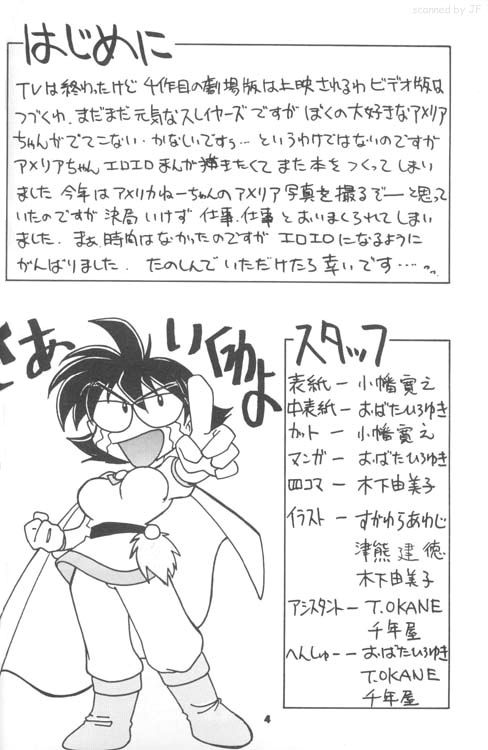 scanned by JF
はじめに
TVは終わったけど 4作目の劇場版は上映されるわ ビデオ版は
つづくわ、まだまだ 元気なスレイヤーズ ですが ぼくの大好きなアメリア
ちゃんが でてこない・かなしいですぅ… というわけではないのですが
アメリアちゃん エロエロ まんが 描きたくて また 本を つくって しまい
ました 今年は アメリカねーちゃんの アメリア 写真を 撮るぞ——と思って
いたのですが 決局 いけず 仕事、仕事 と おいまくられて しまい
ました. まぁ、時間は なかったのですが エロエロになるように
がんばりました. たのしんで いただけたら 幸いです….
さぁ いくわよ
スタッフ
表紙ー 小幡寛之
中表紙ー おばたひろゆき
カットー 小幡寛之
マンガー おばたひろゆき
四コマー 木下由美子
イラストー すがわらあわじ
津熊建徳
木下由美子
アシスタントー T.OKANE
千年屋
へんしゅーー おばたひろゆき
T.OKANE
千年屋
4